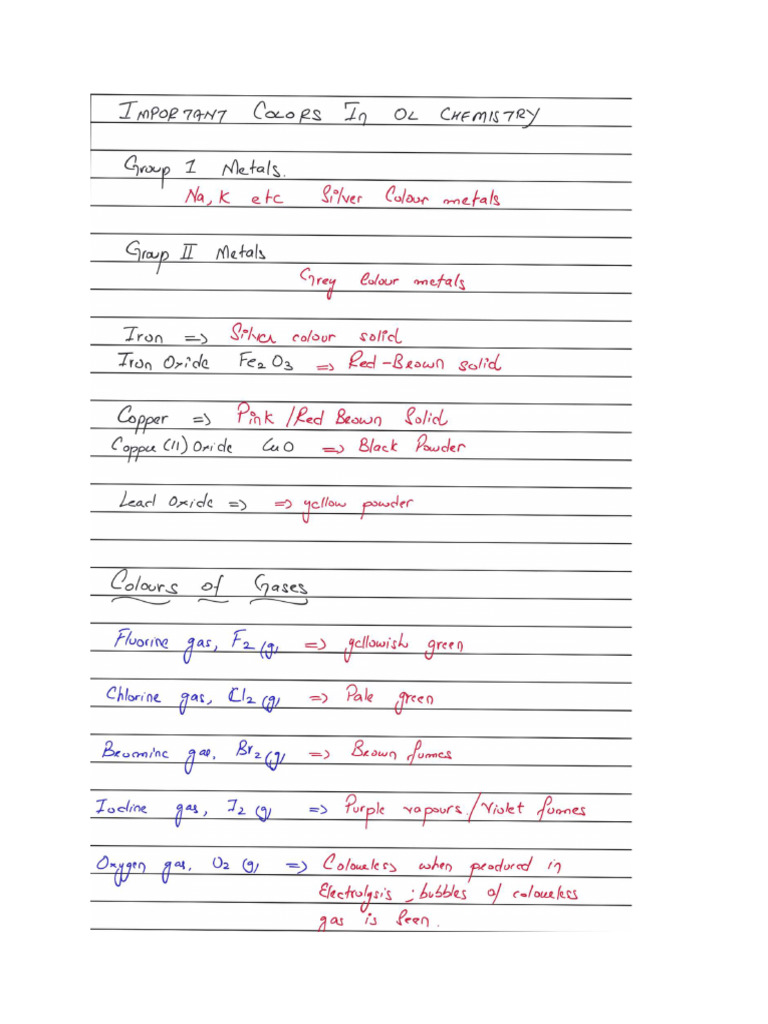 IMPORTANT COLORS In OL CHEMISTRY
Group I Metals.
Na, K etc Silver Colour metals
Group II Metals
Grey Colour metals
Iron => Silver colour solid
Iron Oxide Fe2O3 => Red-Brown solid
Copper => Pink /Red Brown Solid
Copper (II) Oxide CuO => Black Powder
Lead Oxide => => yellow powder
Colours of Gases
Fluorine gas, F2 (g) => yellowish green
Chlorine gas, Cl2 (g) => Pale green
Bromine gas, Br2 (g) => Brown fumes
Iodine gas, I2 (g) => Purple vapours / Violet fumes
Oxygen gas, O2 (g) => Colourless when produced in
Electrolysis ; bubbles of colourless
gas is seen.